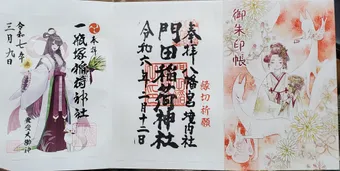 御朱印帳
奉拝
八幡宮境内社
縁切祈願
門田稲荷神社
令和六年二月十二日
奉拝
一瓶塚稲荷神社
令和七年
三月九日